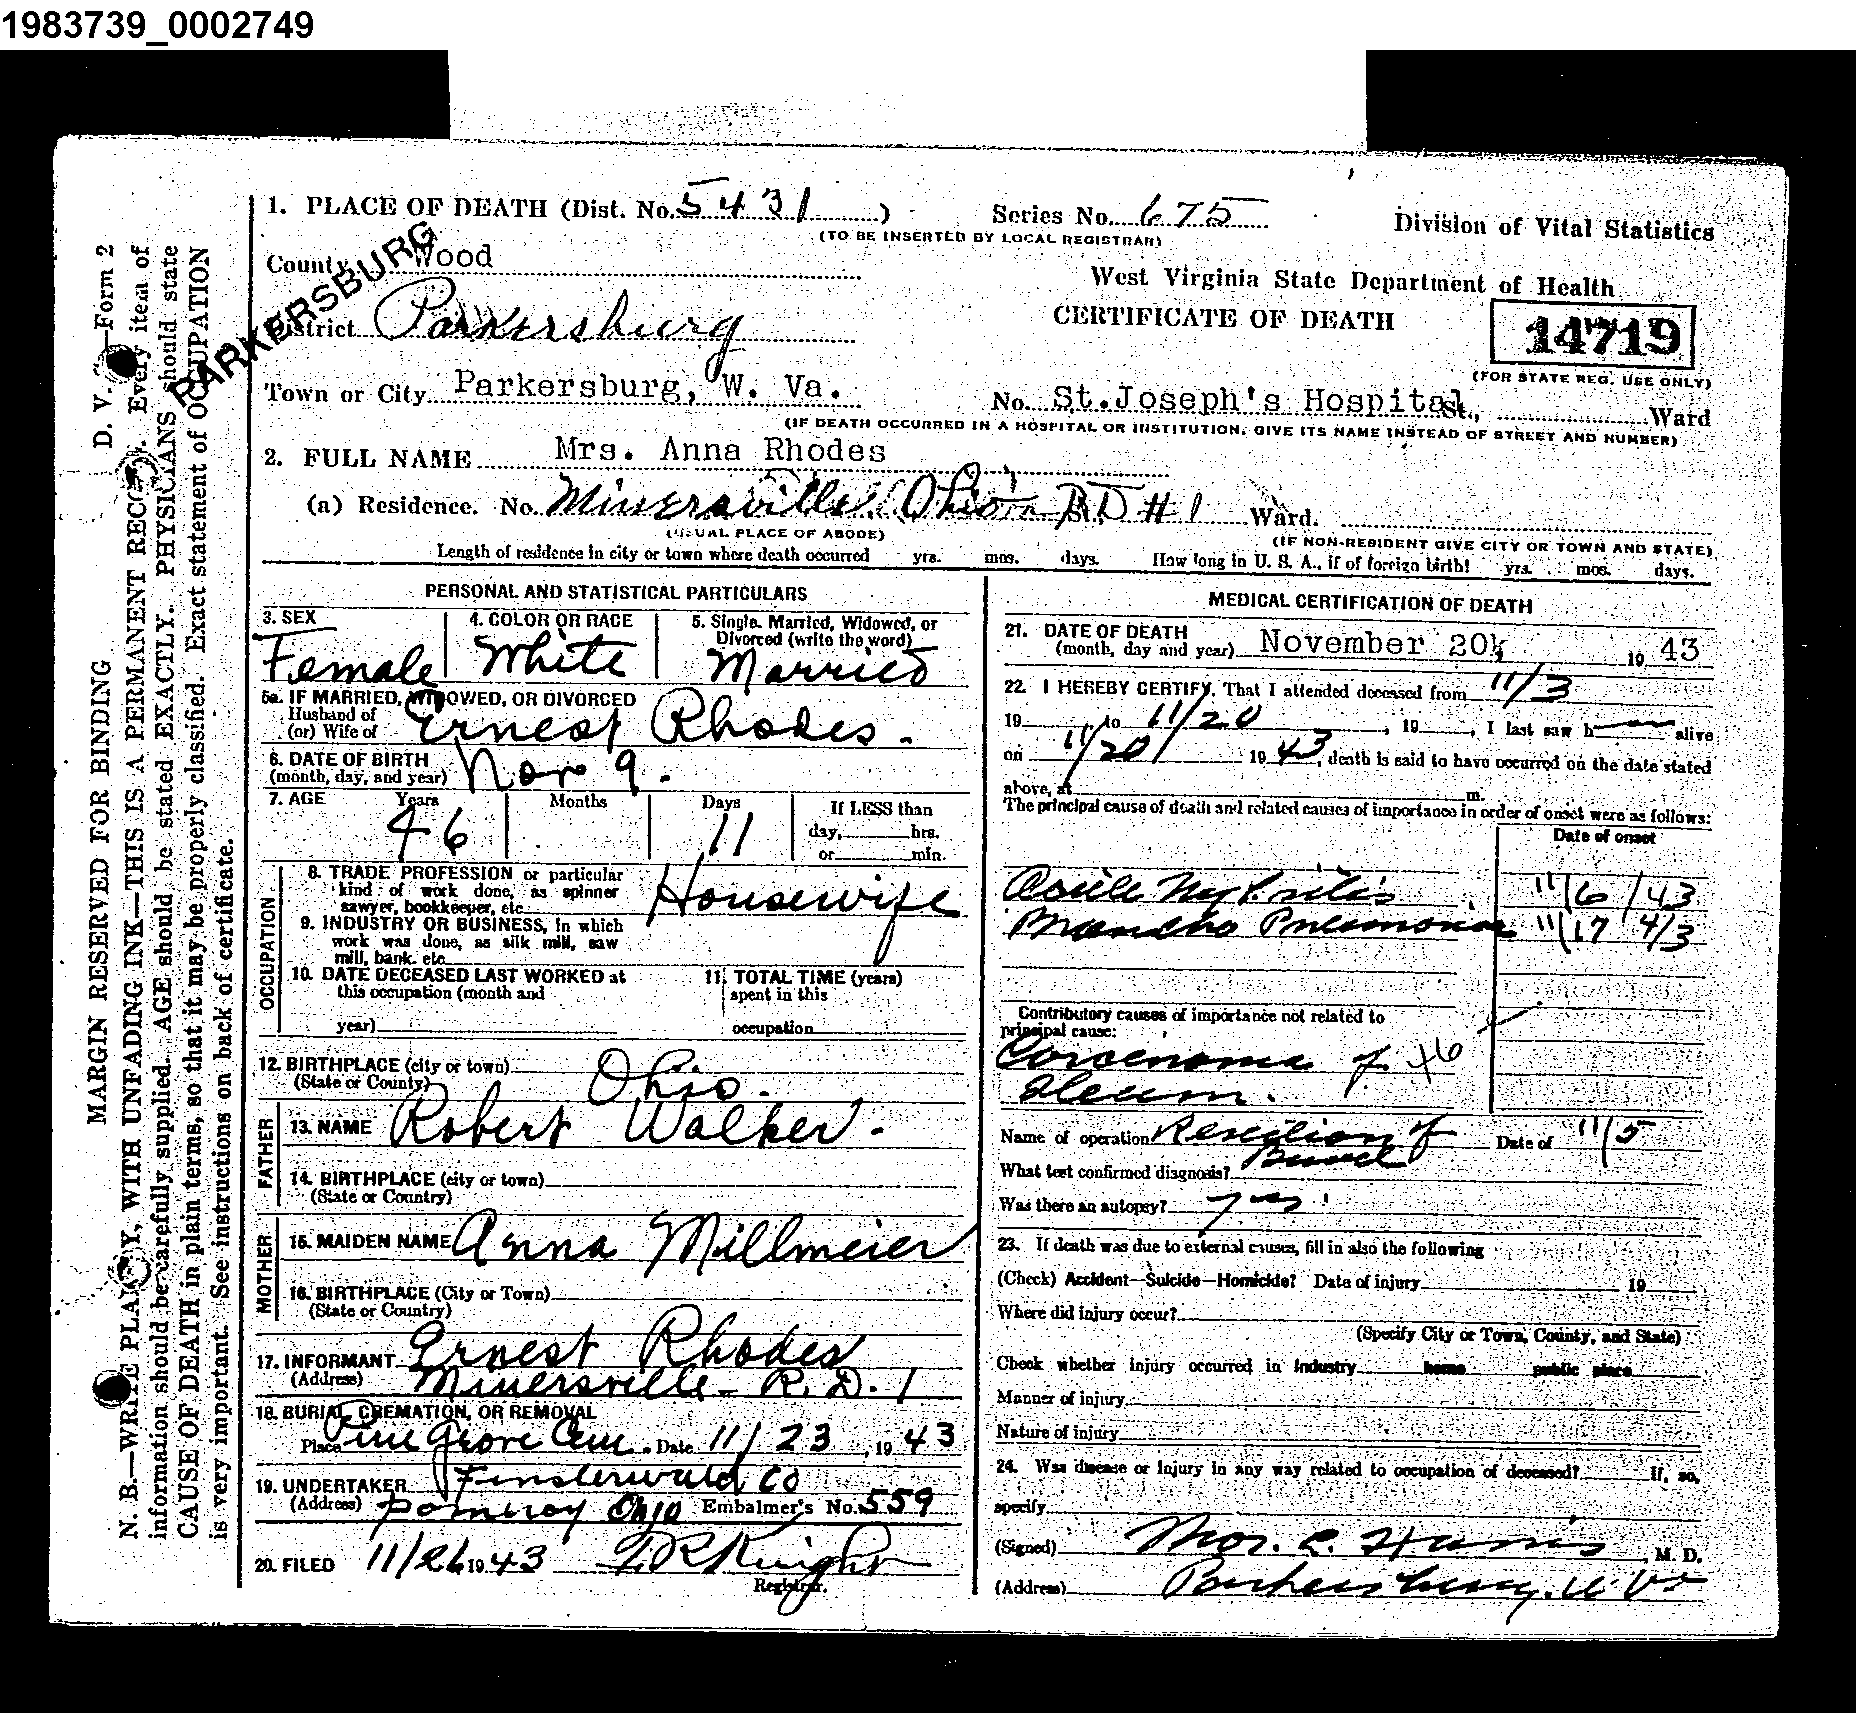 1983739_0002749
1. PLACE OF DEATH (Dist. No. 5431) Series No. 675 Division of Vital Statistics
(TO BE INSERTED BY LOCAL REGISTRAR)
County Wood
PARKERSBURG
West Virginia State Department of Health
District Parkersburg CERTIFICATE OF DEATH 14719
(FOR STATE REG. USE ONLY)
Town or City Parkersburg, W. Va. No. St.Joseph's Hospital St., Ward
(IF DEATH OCCURRED IN A HOSPITAL OR INSTITUTION, GIVE ITS NAME INSTEAD OF STREET AND NUMBER)
2. FULL NAME Mrs. Anna Rhodes
(a) Residence. No. Minersville Ohio R D #1 St., Ward.
(USUAL PLACE OF ABODE) (IF NON-RESIDENT GIVE CITY OR TOWN AND STATE)
Length of residence in city or town where death occurred yrs. mos. days. How long in U. S. A., if of foreign birth? yrs. mos. days.
PERSONAL AND STATISTICAL PARTICULARS
3. SEX 4. COLOR OR RACE 5. Single, Married, Widowed, or
Divorced (write the word)
Female White Married
5a. IF MARRIED, WIDOWED, OR DIVORCED
Husband of
(or) Wife of Ernest Rhodes.
6. DATE OF BIRTH
(month, day, and year) Nov 9.
7. AGE Years Months Days If LESS than
46 11 day, hrs.
or min.
OCCUPATION
8. TRADE PROFESSION or particular
kind of work done, as spinner
sawyer, bookkeeper, etc. Housewife
9. INDUSTRY OR BUSINESS, in which
work was done, as silk mill, saw
mill, bank. etc.
10. DATE DECEASED LAST WORKED at 11. TOTAL TIME (years)
this occupation (month and spent in this
year) occupation
12. BIRTHPLACE (city or town)
(State or County) Ohio.
FATHER
13. NAME Robert Walker.
14. BIRTHPLACE (city or town)
(State or Country)
MOTHER
15. MAIDEN NAME Anna Millmeier
16. BIRTHPLACE (City or Town)
(State or Country)
17. INFORMANT Ernest Rhodes
(Address) Minersville - R. D. 1
18. BURIAL, CREMATION, OR REMOVAL
Place Pine Grove Cem. Date 11/23, 1943
19. UNDERTAKER Finsterwald Co
(Address) Pomeroy Ohio Embalmer's No. 559
20. FILED 11/26 1943 Knight
Registrar.
MEDICAL CERTIFICATION OF DEATH
21. DATE OF DEATH
(month, day and year) November 20, 19 43
22. I HEREBY CERTIFY, That I attended deceased from 11/3
19 to 11/20, 19, I last saw h alive
on 11/20/ 1943, death is said to have occurred on the date stated
above, at m.
The principal cause of death and related causes of importance in order of onset were as follows:
Date of onset
Acute Nephritis 11/6/43
Broncho Pneumonia 11/17 43
Contributory causes of importance not related to
principal cause:
Carcenoma of 46
Ileum.
Name of operation Resection of Date of 11/5
Bowel
What test confirmed diagnosis?
Was there an autopsy? yes.
23. If death was due to external causes, fill in also the following
(Check) Accident—Suicide—Homicide? Date of injury 19
Where did injury occur?
(Specify City or Town, County, and State)
Check whether injury occurred in industry home public place
Manner of injury
Nature of injury
24. Was disease or injury in any way related to occupation of deceased? If, so,
specify
(Signed) Thos. L. Harris, M. D.
(Address) Parkersburg, W Va
D. V. —Form 2
MARGIN RESERVED FOR BINDING
N. B.—WRITE PLAINLY, WITH UNFADING INK—THIS IS A PERMANENT RECORD. Every item of
information should be carefully supplied. AGE should be stated EXACTLY. PHYSICIANS should state
CAUSE OF DEATH in plain terms, so that it may be properly classified. Exact statement of OCCUPATION
is very important. See instructions on back of certificate.